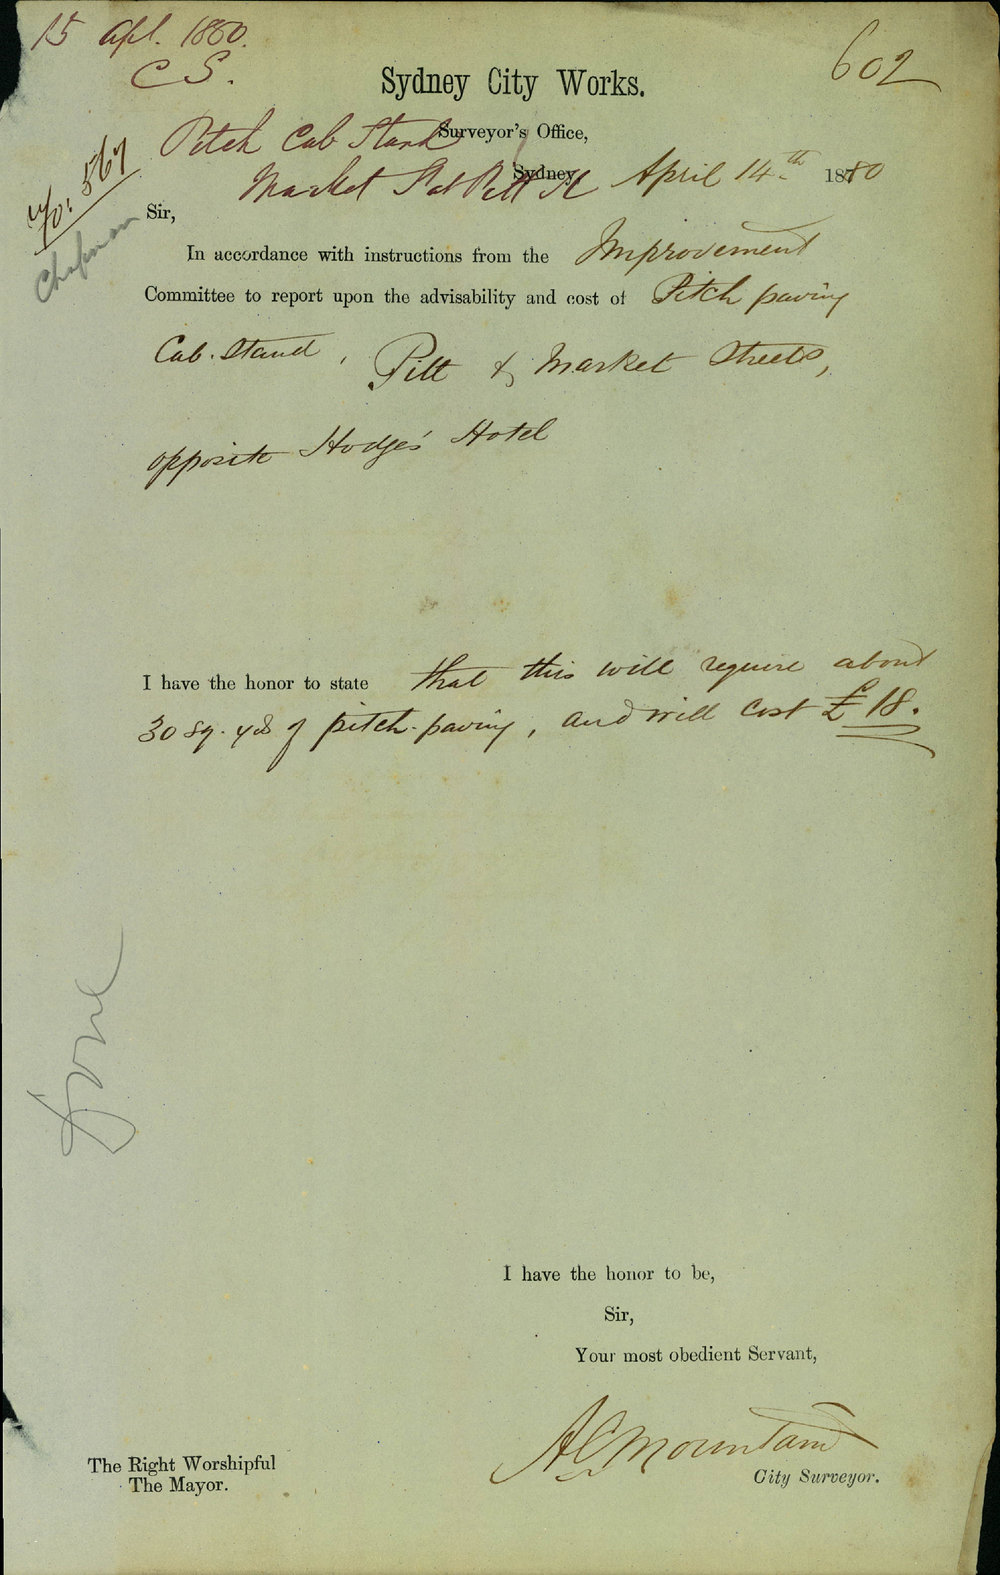 15 Apl. 1880.
C S.
602
Sydney City Works.
Pitch Cab Stand
Surveyor's Office,
Market St & Pitt St
Sydney, April 14th 1880
W/O: 567
Chapman
Sir,
In accordance with instructions from the Improvement
Committee to report upon the advisability and cost of Pitch paving
Cab. Stand, Pitt & Market Streets,
opposite Hodge's Hotel
I have the honor to state that this will require about
30 sq. yds of pitch-paving, and will cost £18.
Done
I have the honor to be,
Sir,
Your most obedient Servant,
A C Mountain
City Surveyor.
The Right Worshipful
The Mayor.